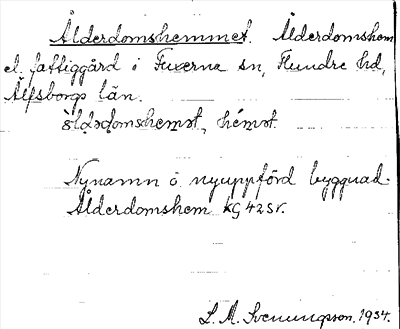 Ålderdomshemmet. Ålderdomshem
el. fattiggård i Fuxerna sn, Flundre hd,
Älfsborgs län.
ò̀ldədomshemət, hémət.
Nynamn å nyuppförd byggnad.
Ålderdomshem kg 42 sv.
L. M. Svenungson. 1934.